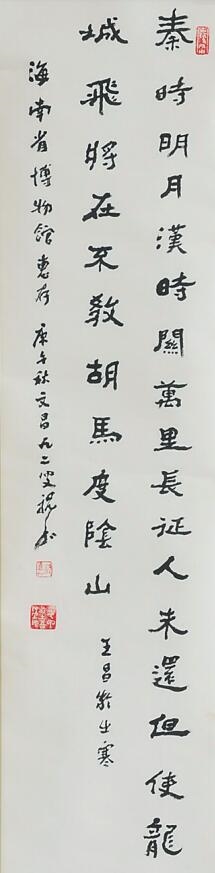 秦時明月漢時關萬里長征人未還但使龍
城飛將在不教胡馬度陰山
王昌齡出塞
海南省博物館惠存 庚午秋文昌九二叟